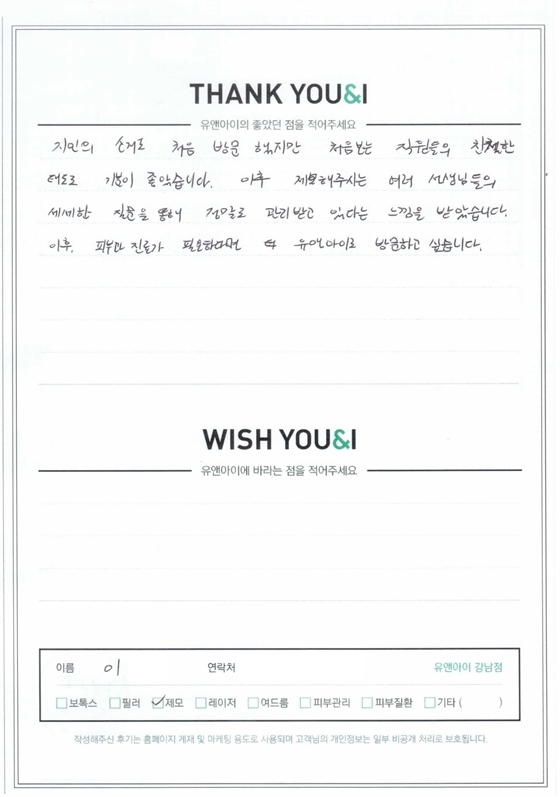 THANK YOU&I
유앤아이의 좋았던 점을 적어주세요
지인의 소개로 처음 방문 했지만 처음보는 직원들의 친절한
태도로 기분이 좋았습니다. 이후 제모해주시는 여러 선생님들의
세세한 질문을 통해 정말로 관리받고 있다는 느낌을 받았습니다.
이후, 피부과 진료가 필요하다면 또 유앤아이로 방문하고 싶습니다.
WISH YOU&I
유앤아이에 바라는 점을 적어주세요
이름 이 연락처 유앤아이 강남점
보톡스 필러 제모 레이저 여드름 피부관리 피부질환 기타 ( )
작성해주신 후기는 홈페이지 게재 및 마케팅 용도로 사용되며 고객님의 개인정보는 일부 비공개 처리로 보호됩니다.